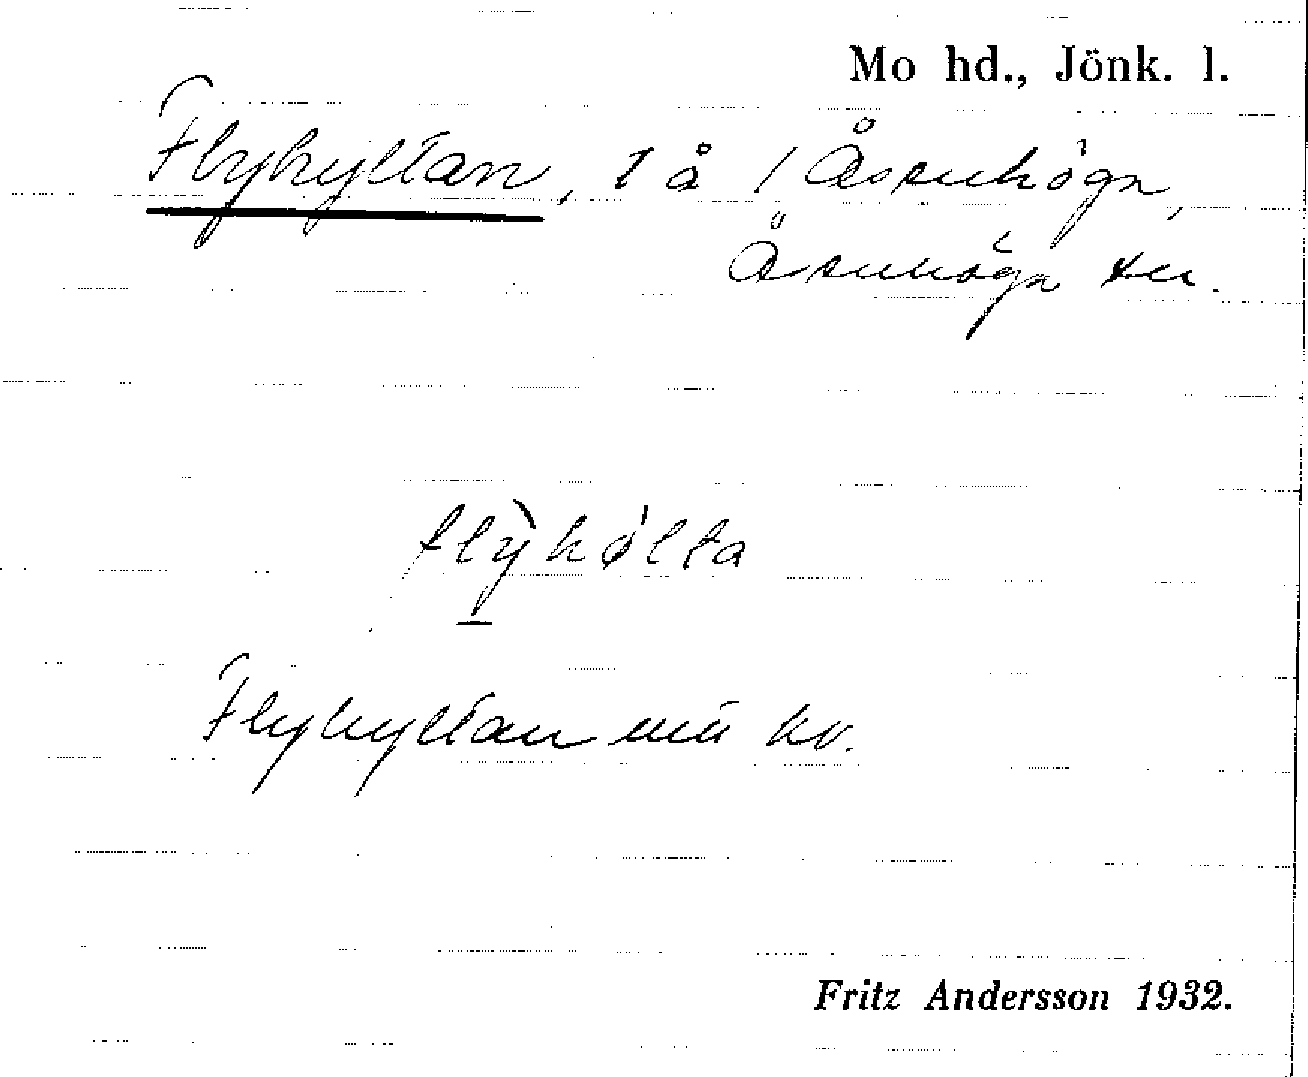 Mo hd., Jönk. l.
Flyhyltan, t å i Åsenhöga,
Åsenhöga sn.
flỳhólta
Flyhyltan mil kv.
Fritz Andersson 1932.